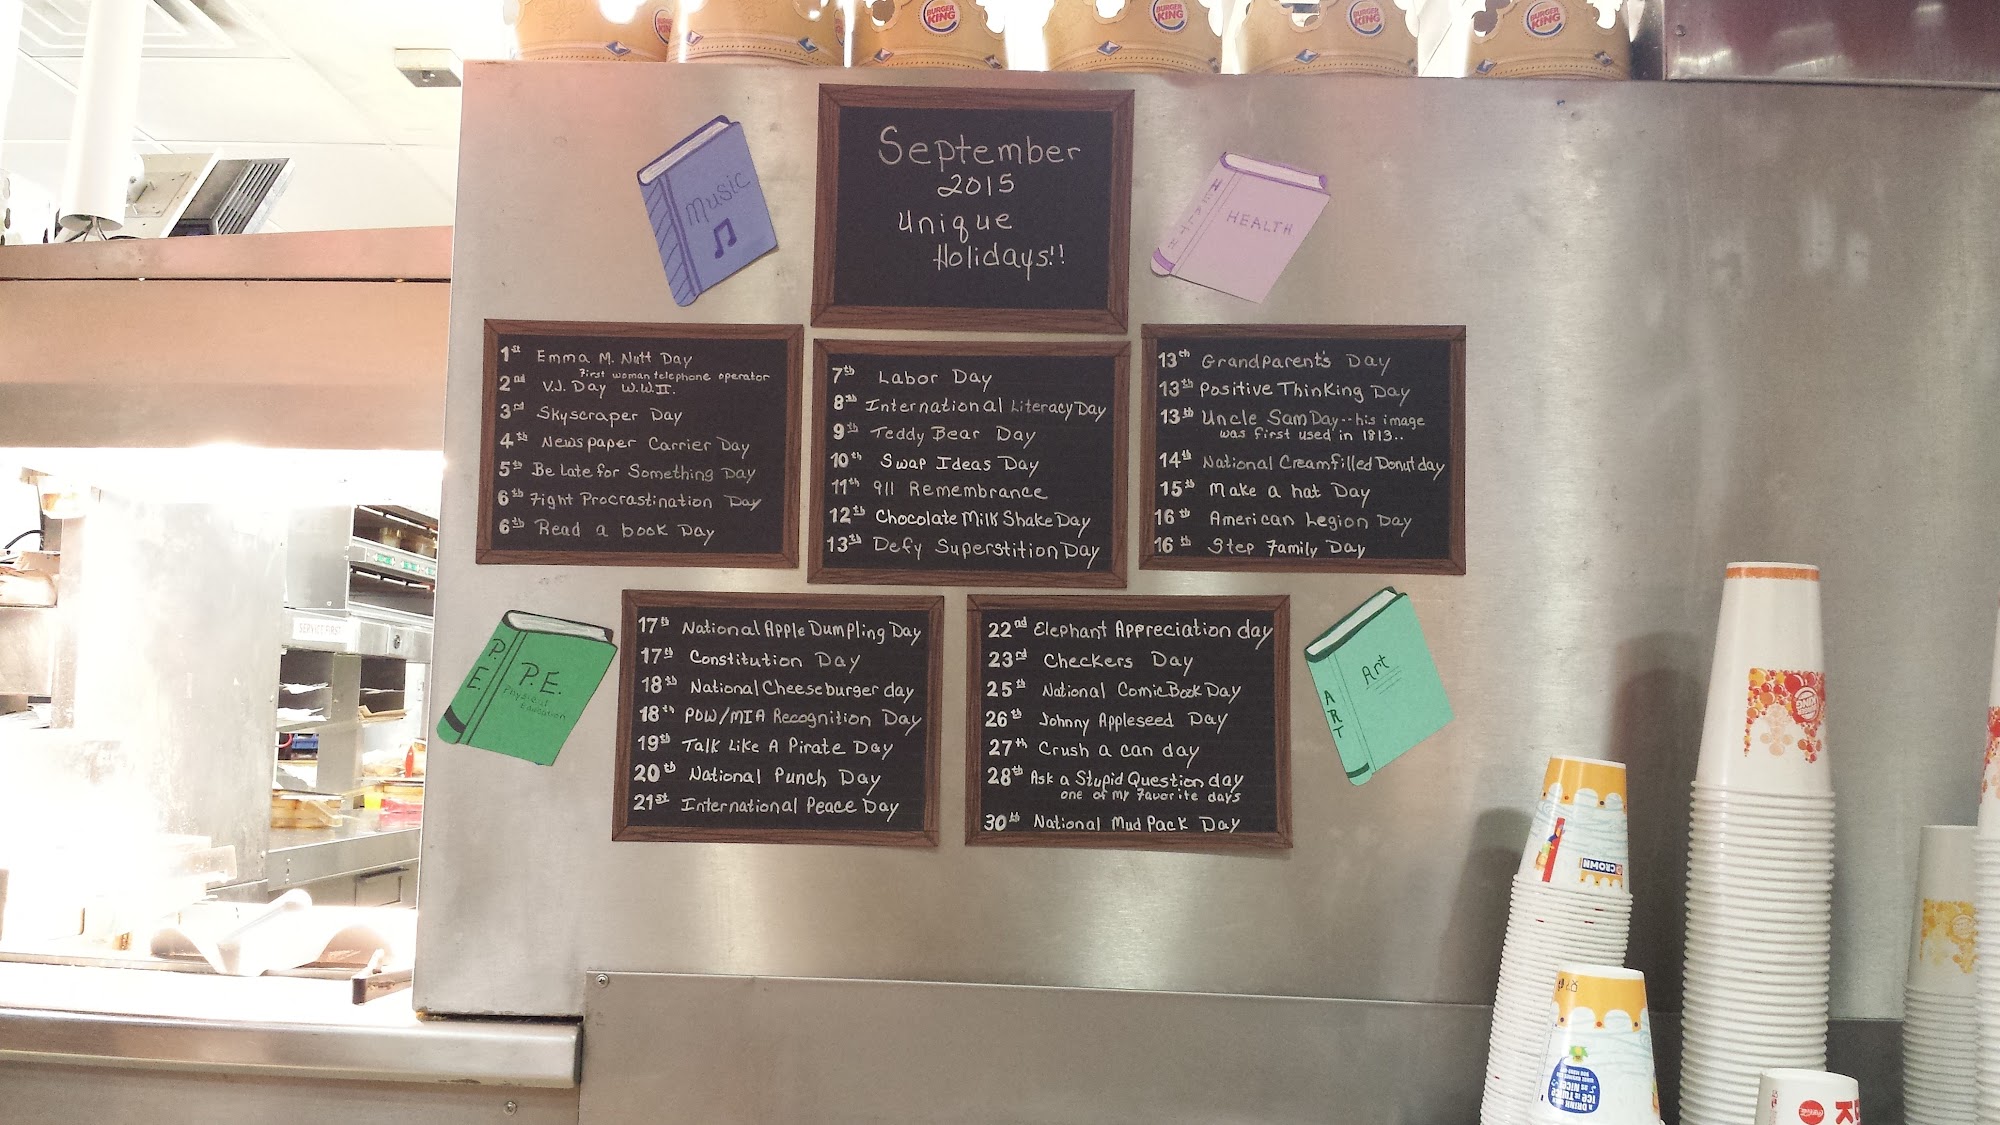 BURGER KING
BURGER KING
BURGER KING
BURGER KING
BURGER KING
September
2015
Unique
Holidays!!
Music
HEALTH
HEALTH
1st Emma M. Nutt Day
First woman telephone operator
2nd V.J. Day W.W.II.
3rd Skyscraper Day
4th Newspaper Carrier Day
5th Be Late for Something Day
6th Fight Procrastination Day
6th Read a book Day
7th Labor Day
8th International Literacy Day
9th Teddy Bear Day
10th Swap Ideas Day
11th 911 Remembrance
12th Chocolate Milk Shake Day
13th Defy Superstition Day
13th Grandparent's Day
13th Positive Thinking Day
13th Uncle Sam Day -- his image
was first used in 1813..
14th National Creamfilled Donut day
15th Make a hat Day
16th American Legion Day
16th Step Family Day
P.E.
P.E.
Physical
Education
17th National Apple Dumpling Day
17th Constitution Day
18th National Cheeseburger day
18th POW/MIA Recognition Day
19th Talk Like A Pirate Day
20th National Punch Day
21st International Peace Day
22nd Elephant Appreciation day
23rd Checkers Day
25th National Comic Book Day
26th Johnny Appleseed Day
27th Crush a can day
28th Ask a Stupid Question day
one of my Favorite days
30th National Mud Pack Day
Art
ART
SERVICE FIRST
BURGER KING
CROWN
A DRINK WITH
ICE IS TWICE
AS NICE